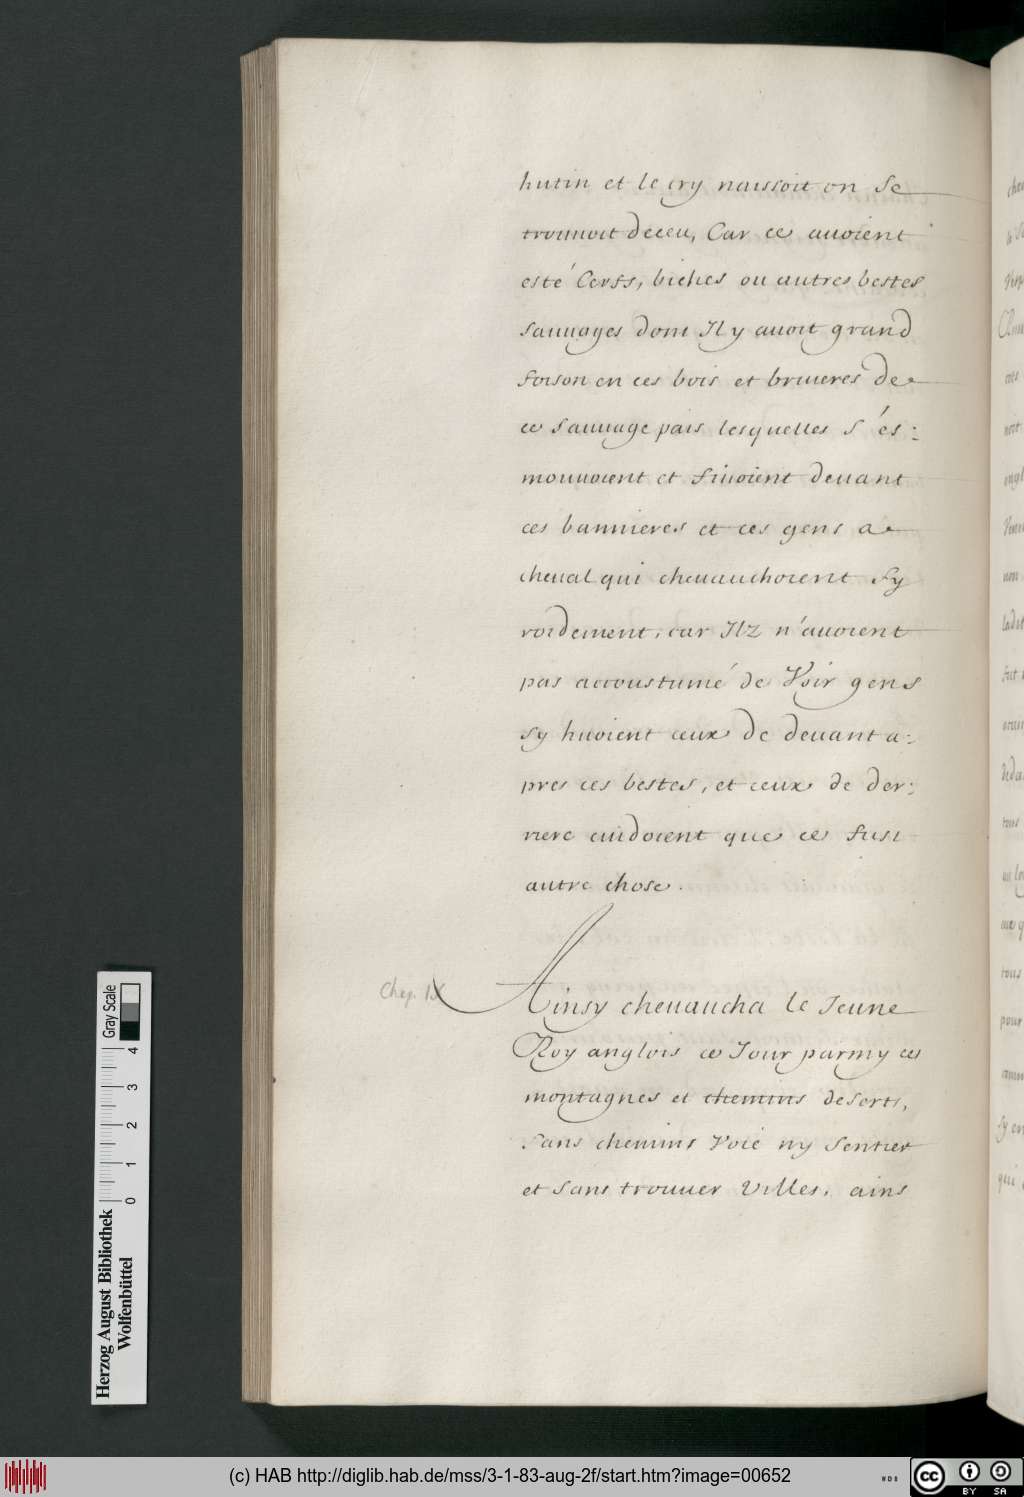 hutin et le cry naissoit on se
trouuoit deceu, Car ce auoient
esté Cerfs, biches ou autres bestes
sauuages dont Il y auoit grand
foison en ces bois et bruieres de
ce sauuage pais lesquelles s'es:
mouuoient et fuioient deuant
ces bannieres et ces gens a
cheual qui cheuauchoient sy
roidement, car Ilz n'auoient
pas accoustumé de Voir gens
sy huoient ceux de deuant a:
pres ces bestes, et ceux de der:
riere cuidoient que ce fust
autre chose.
Chap. IX
Ainsy cheuaucha le Jeune
Roy anglois ce Jour parmy ces
montagnes et chemins deserts,
sans chemins Voie ny sentier
et sans trouuer Villes, ains
Gray Scale
4
3
2
1
0
Herzog August Bibliothek
Wolfenbüttel
(c) HAB http://diglib.hab.de/mss/3-1-83-aug-2f/start.htm?image=00652
WDB
cc
BY SA